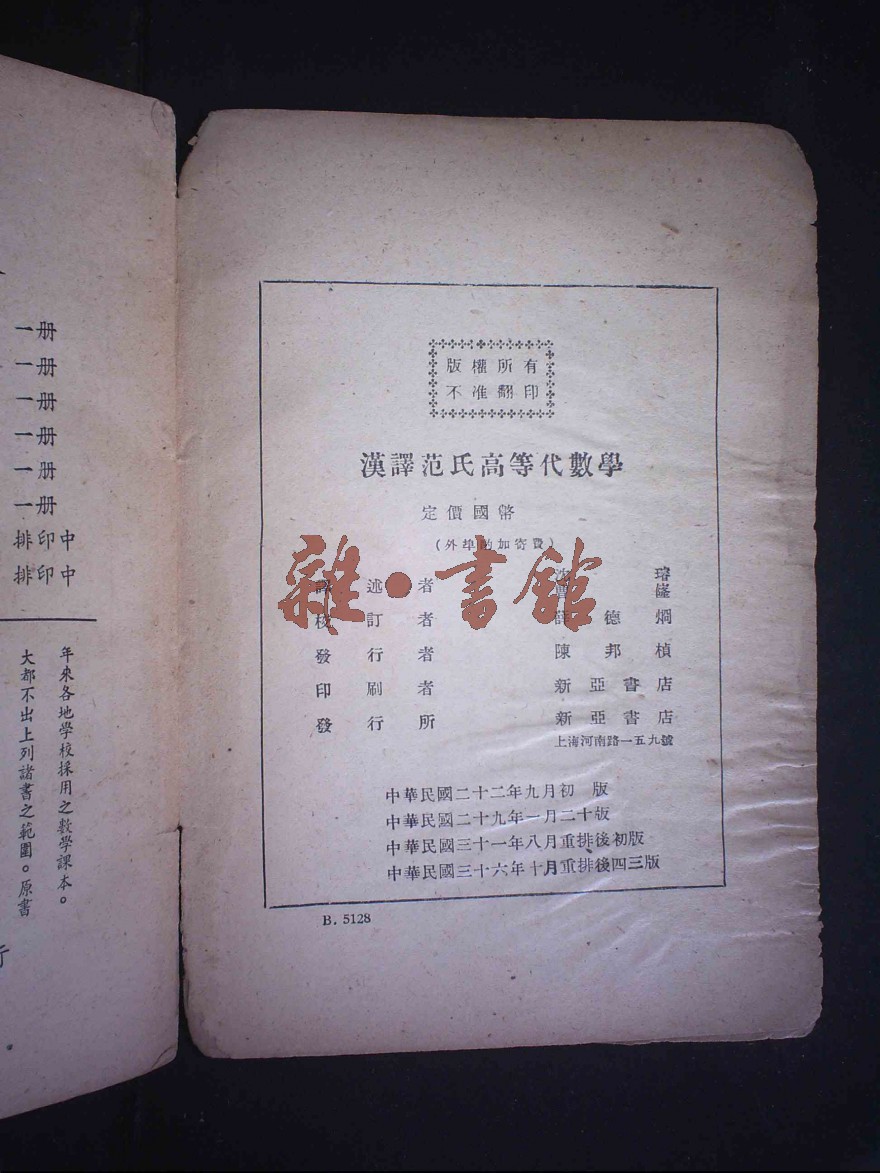 版權所有
不准翻印
漢譯范氏高等代數學
定價國幣
(外埠酌加寄費)
述者
璿
訂者
德炯
發行者 陳邦楨
印刷者 新亞書店
發行所 新亞書店
上海河南路一五九號
中華民國二十二年九月初版
中華民國二十九年一月二十版
中華民國三十一年八月重排後初版
中華民國三十六年十月重排後四三版
B. 5128
雜·書館
一册
一册
一册
一册
一册
一册
排印中
排印中
年來各地學校採用之數學課本。
大都不出上列諸書之範圍。原書
行